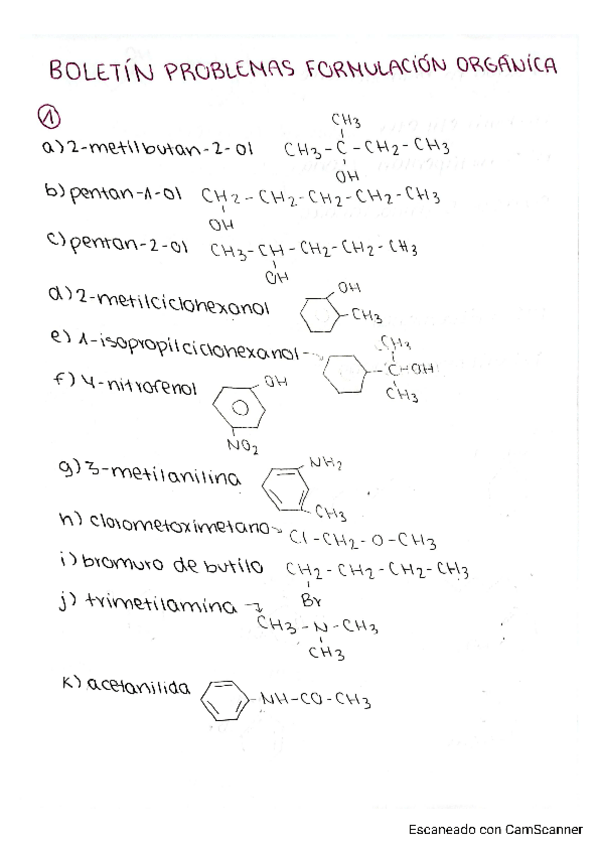 BOLETÍN PROBLEMAS FORMULACIÓN ORGÁNICA
1
CH3
a) 2-metilbutan-2-ol CH3-C-CH2-CH3
OH
b) pentan-1-ol CH2-CH2-CH2-CH2-CH3
OH
c) pentan-2-ol CH3-CH-CH2-CH2-CH3
OH
d) 2-metilciclohexanol OH
CH3
e) 1-isopropilciclohexanol CH3
C-OH
CH3
f) 4-nitrofenol OH
NO2
g) 3-metilanilina NH2
CH3
h) clorometoximetano Cl-CH2-O-CH3
i) bromuro de butilo CH2-CH2-CH2-CH3
Br
j) trimetilamina CH3-N-CH3
CH3
k) acetanilida NH-CO-CH3
Escaneado con CamScanner